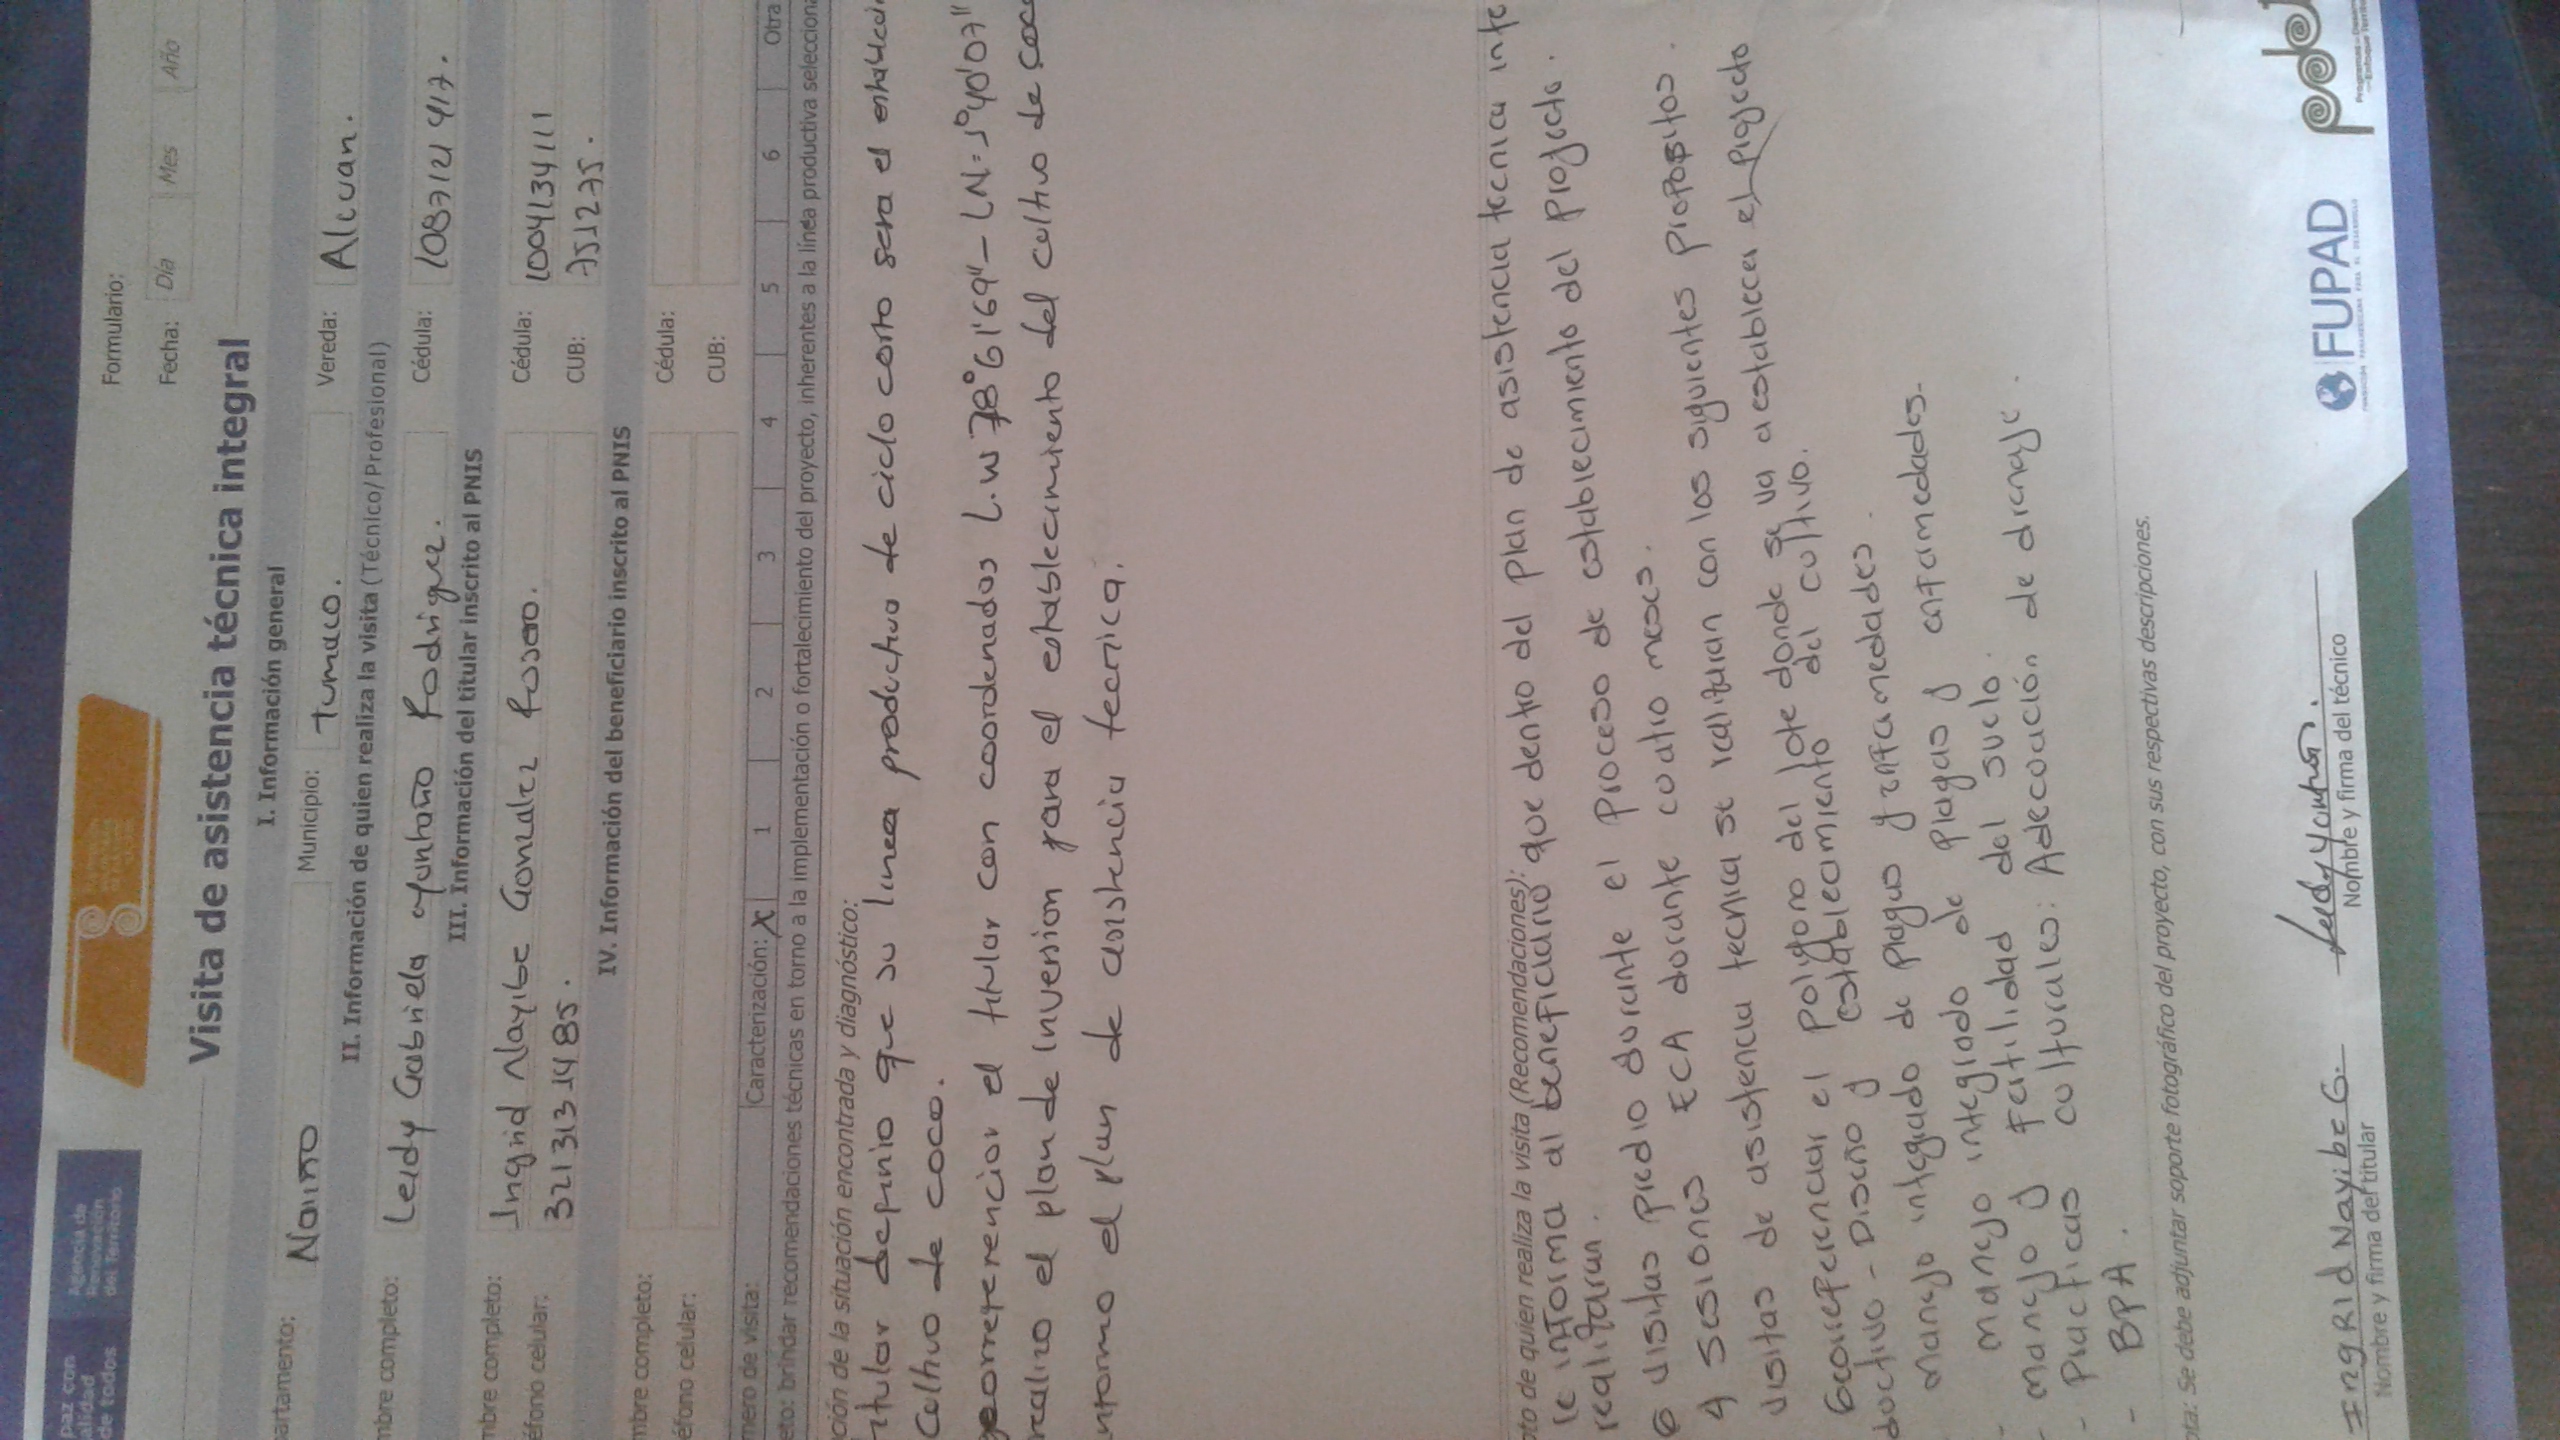 paz con
alidad
de todos
Agencia de
Renovación
del Territorio
Formulario:
Fecha: Día Mes Año
Visita de asistencia técnica integral
I. Información general
partamento: Nariño Municipio: Tumaco. Vereda: Alcuan.
II. Información de quien realiza la visita (Técnico/Profesional)
mbre completo: Leidy Gabriela Rodriguez. Cédula: 1087121417.
III. Información del titular inscrito al PNIS
mbre completo: Ingrid Nayibe Gonzalez Rosero. Cédula: 1004134111
éfono celular: 3213131485. CUB: 751275.
IV. Información del beneficiario inscrito al PNIS
mbre completo: Cédula:
éfono celular: CUB:
mero de visita: Caracterización: X 1 2 3 4 5 6 Otra
eto: brindar recomendaciones técnicas en torno a la implementación o fortalecimiento del proyecto, inherentes a la línea productiva selecciona
ción de la situación encontrada y diagnóstico:
titular definio que su linea productiva de ciclo corto sera el
Cultivo de coco.
georreferencior el titular con coordenados L.W 78°61'69" - LN=1°40'07"
realizo el plan de inversion para el establecimiento del cultivo de coco
informo el plan de asistencia tecnica.
pto de quien realiza la visita (Recomendaciones): que dentro del plan de asistencia tecnica inte
le informa al beneficiario
realizaran.
6 visitas predio durante el proceso de establecimiento del proyecto.
4 sesiones ECA durante cuatro meses.
visitas de asistencia tecnica se realizaran con los siguientes propositos.
Georeferenciar el poligono del lote donde se va a establecer el proyecto
ductivo - Diseño y establecimiento del cultivo.
manejo integrado de plagas y enfermedades.
- manejo integrado de plagas y enfermedades.
- manejo y fertilidad del suelo.
- Practicas culturales: Adecuación de drenaje.
- BPA.
ota: Se debe adjuntar soporte fotográfico del proyecto, con sus respectivas descripciones.
INgRId Nayibe G.
Nombre y firma del titular
Nombre y firma del técnico
FUPAD
FUNDACIÓN PANAMERICANA PARA EL DESARROLLO
pdet